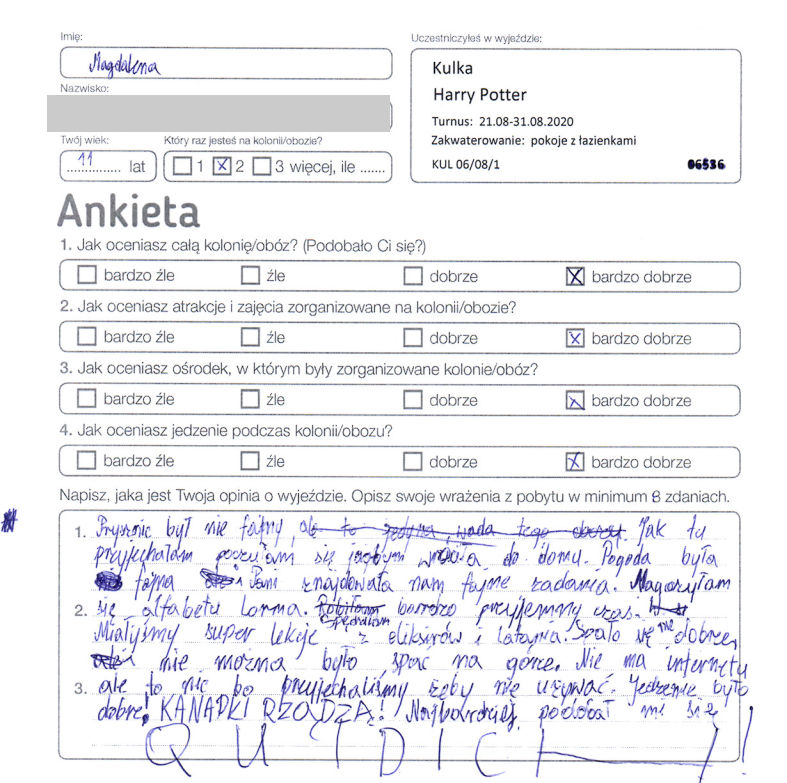 Imię:
Magdalena
Nazwisko:
Twój wiek:
11 lat
Który raz jesteś na kolonii/obozie?
1 X 2 3 więcej, ile .......
Uczestniczyłeś w wyjeździe:
Kulka
Harry Potter
Turnus: 21.08-31.08.2020
Zakwaterowanie: pokoje z łazienkami
KUL 06/08/1 06536
Ankieta
1. Jak oceniasz całą kolonię/obóz? (Podobało Ci się?)
bardzo źle źle dobrze X bardzo dobrze
2. Jak oceniasz atrakcje i zajęcia zorganizowane na kolonii/obozie?
bardzo źle źle dobrze X bardzo dobrze
3. Jak oceniasz ośrodek, w którym były zorganizowane kolonie/obóz?
bardzo źle źle dobrze X bardzo dobrze
4. Jak oceniasz jedzenie podczas kolonii/obozu?
bardzo źle źle dobrze X bardzo dobrze
Napisz, jaka jest Twoja opinia o wyjeździe. Opisz swoje wrażenia z pobytu w minimum 8 zdaniach.
1. Prysznic był nie fajny, ale to jedyna wada tego obozu. Jak tu
przyjechałam poczułam się jagbym wróciła do domu. Pogoda była
fajna i Pani znajdowała nam fajne zadania. Nauczyłam
2. się alfabetu Lorma. Robiłam Spędziłam bardzo przyjemny czas.
Miałyśmy super lekcje z eliksirów i latania. Spało się nie dobrze,
nie można było spać na górce. Nie ma internetu
3. ale to nic bo przyjechaliśmy żeby nie używać. Jedzenie było
dobre! KANAPKI RZĄDZĄ! Najbardziej podobał mi się
QUIDICH!